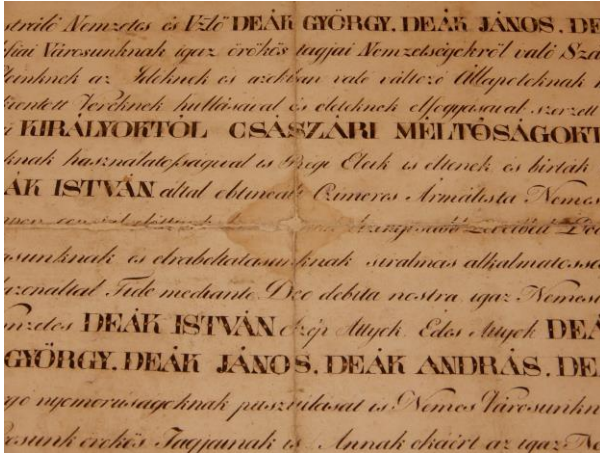 stráló Nemzetes és Vzlő DEÁK GYÖRGY. DEÁK JÁNOS. DE
fiai Városunknak igaz örökös tagjai Nemzetségekről való Szá
az Idöknek es azokban való változó Állapotoknak
Véreknek hullásával és eleteknek elfogyásával szerzett
KIRÁLYOKTÓL CSÁSZÁRI MÉLTÓSÁGOKT
knak használatosságival is Régi Eleik is éltenek és birták
ÁK ISTVÁN által obtineált Czimeres Ármálista Nemes
asunknak és elraboltatásunknak siralmas alkalmatossá
Fide mediante Deo debita nostra igaz Nemes
mzetes DEÁK ISTVÁN Szép Attyok Edes Attyok DEÁ
GYÖRGY. DEÁK JÁNOS. DEÁK ANDRÁS. DE
nyomoruságoknak pusztulását is Nemes Városunkn
rosunk örökös Tagjainak is Annak okáirt az igaz Ne